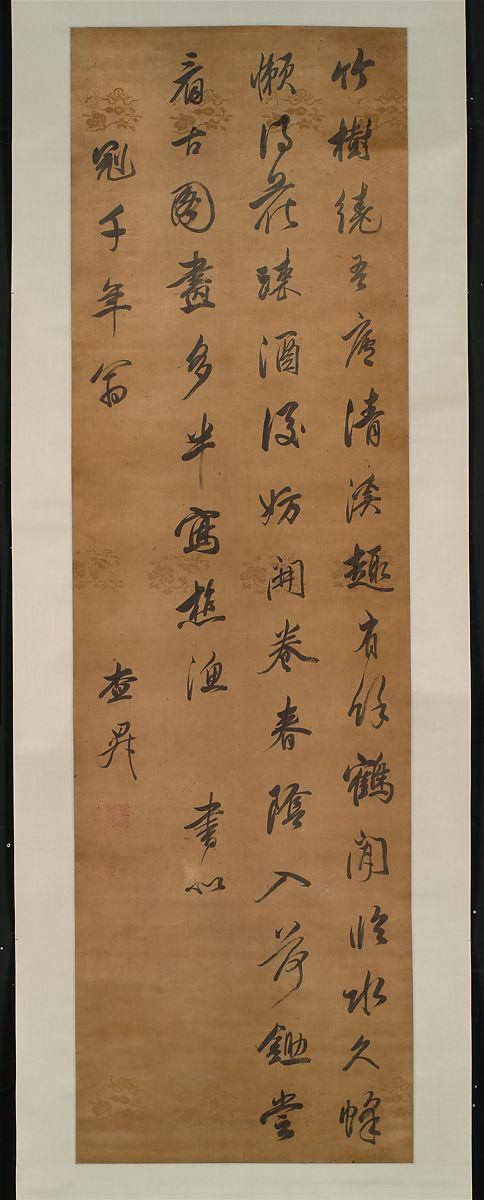 竹樹繞吾廬清深趣有餘鶴閒臨水久蜂
懶得花疎酒後妨開卷春陰入荷鋤嘗
看古圖畫多半寫樵漁 書似
冠千年翁 查昇